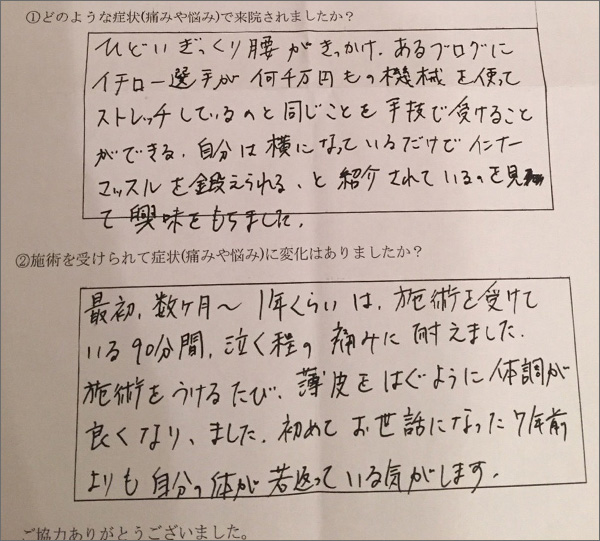 ①どのような症状(痛みや悩み)で来院されましたか？
ひどいぎっくり腰がきっかけ。あるブログに
イチロー選手が何千万円もの機械を使って
ストレッチしているのと同じことを手技で受けること
ができる、自分は横になっているだけでインナー
マッスルを鍛えられる、と紹介されているのを見
て興味をもちました。
②施術を受けられて症状(痛みや悩み)に変化はありましたか？
最初、数ヶ月〜1年くらいは、施術を受けて
いる90分間、泣く程の痛みに耐えました。
施術をうけるたび、薄皮をはぐように体調が
良くなり、ました。初めてお世話になった7年前
よりも自分の体が若返っている気がします。
ご協力ありがとうございました。